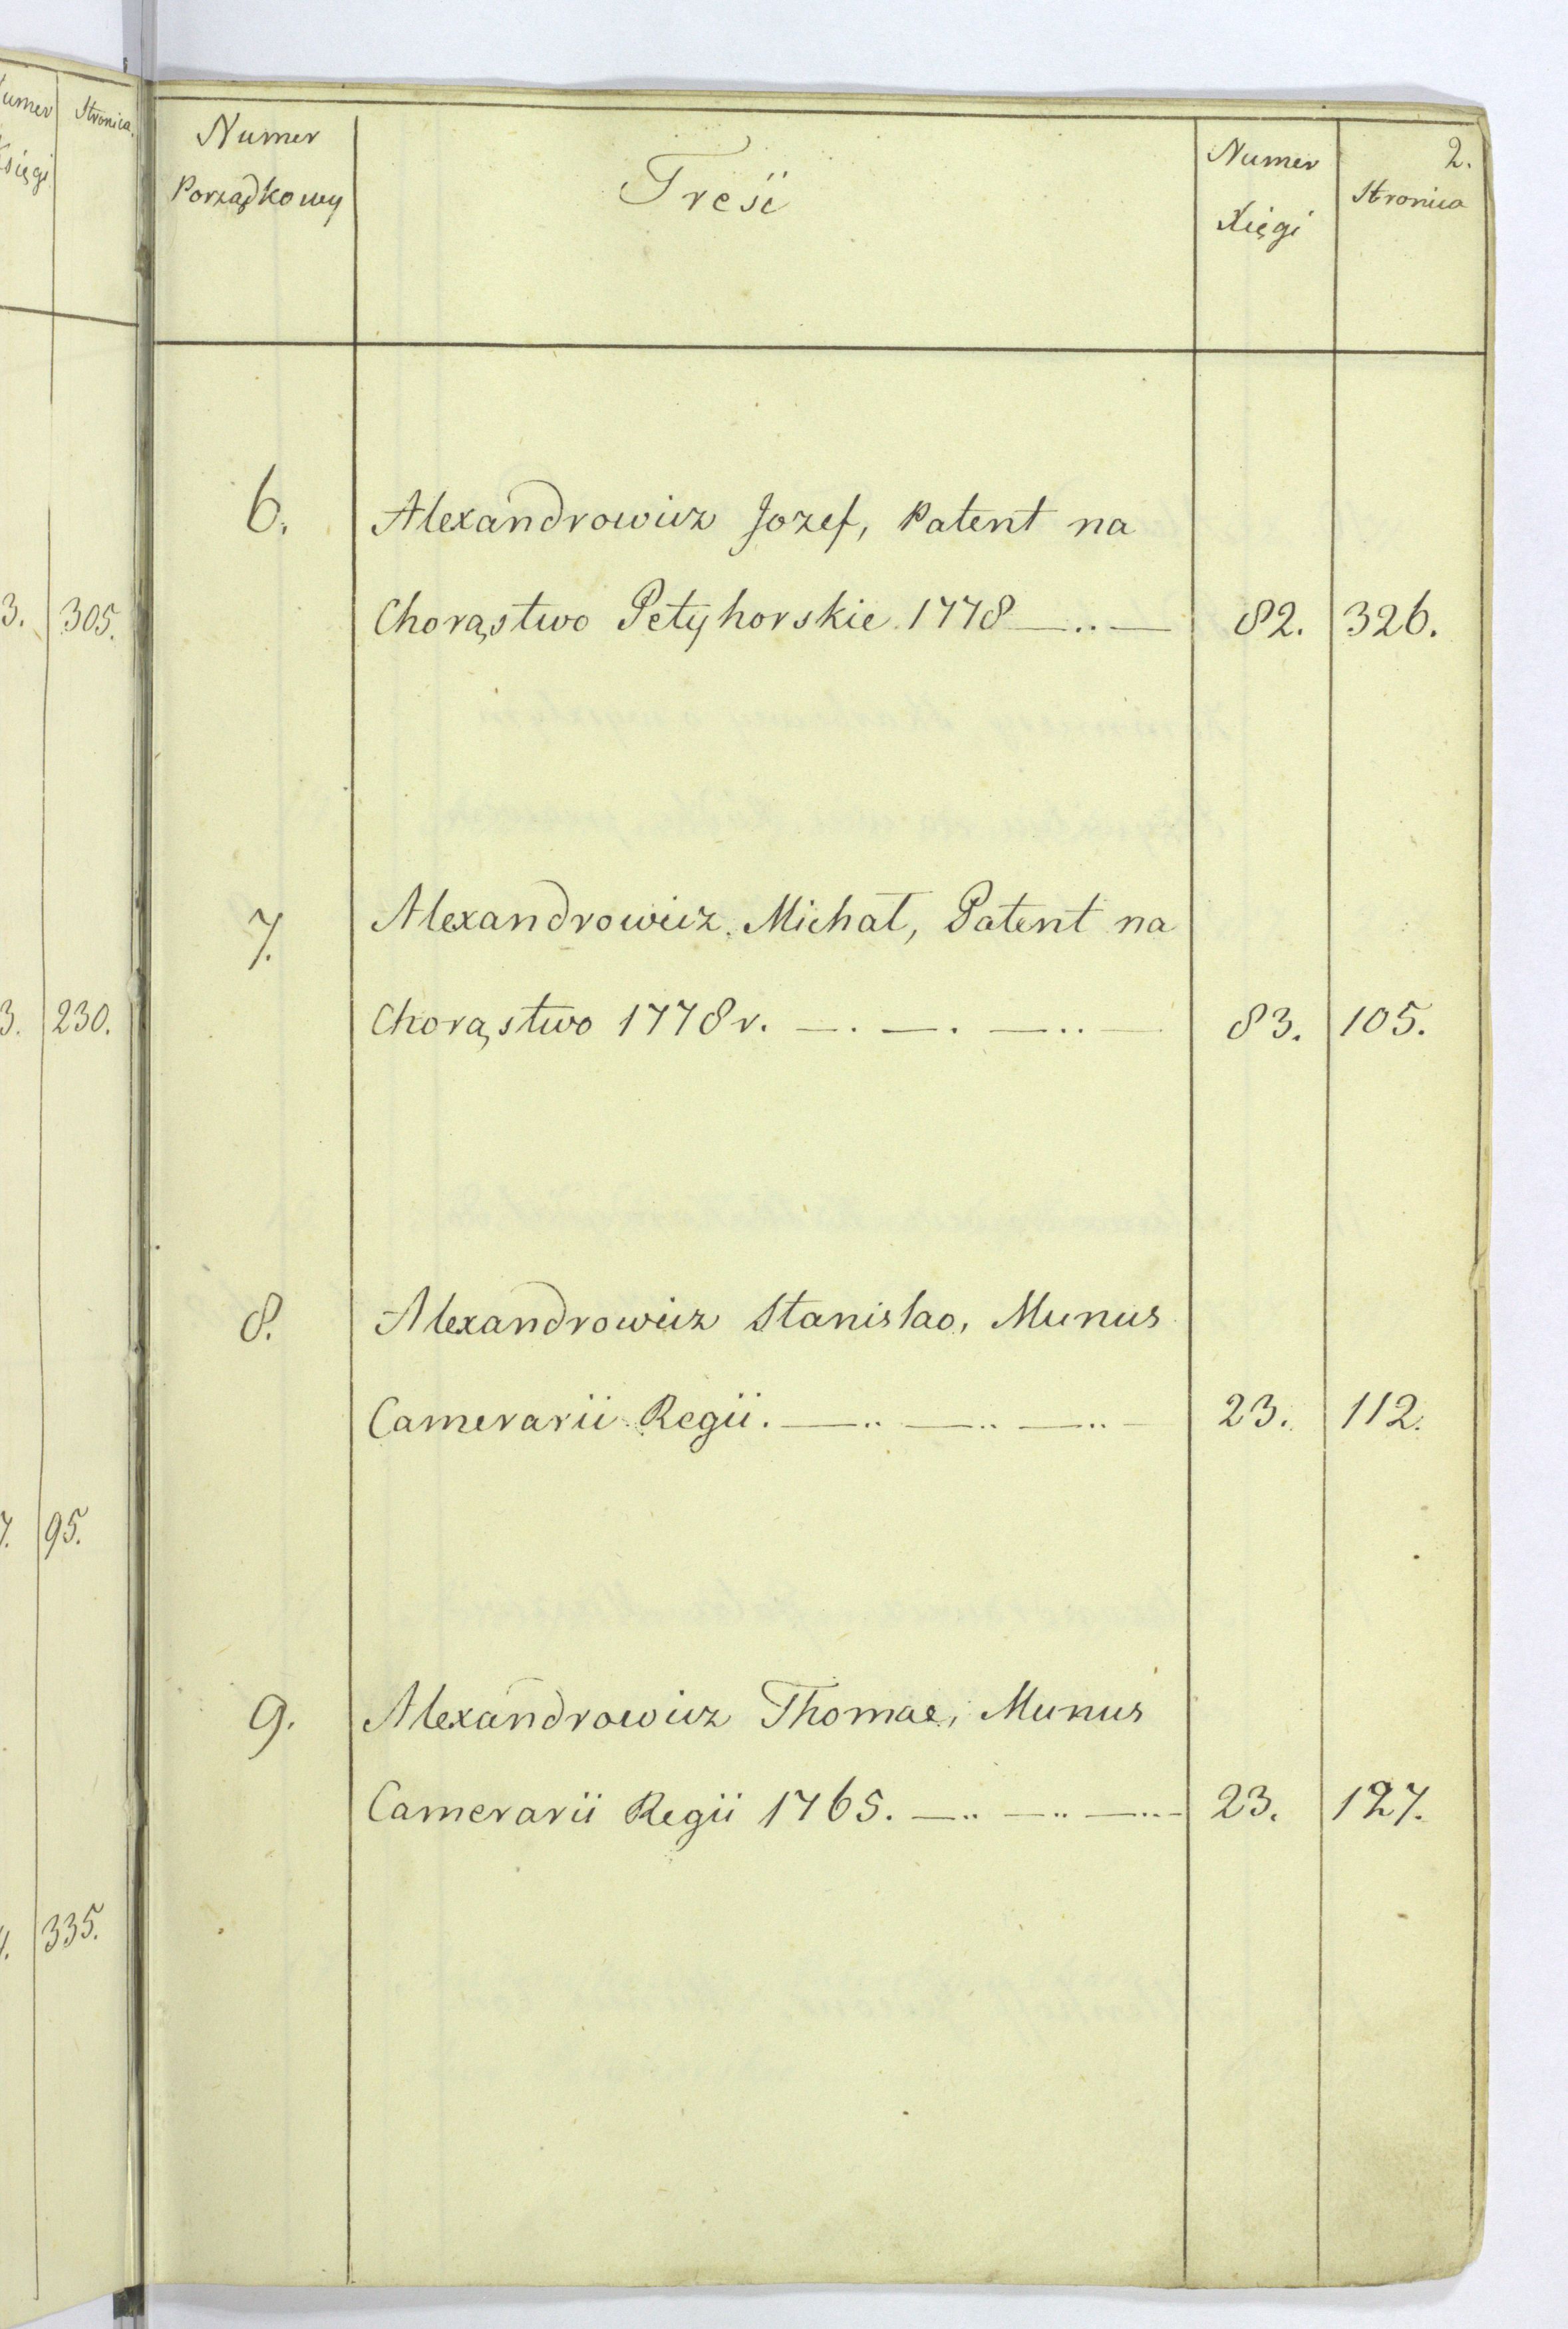 umer
Stronica.
sięgi
3. 305.
3. 230.
7. 95.
335.
2.
Numer Porządkowy
Treść
Numer Xięgi
Stronica
6. Alexandrowicz Jozef, Patent na
Chorąstwo Petyhorskie 1778 —..— 82. 326.
7. Alexandrowicz Michał, Patent na
Chorąstwo 1778 r. —. —. —..— 83. 105.
8. Alexandrowicz Stanislao, Munus
Camerarii Regii. —.. —.. —..— 23. 112.
9. Alexandrowicz Thomae, Munus
Camerarii Regii 1765. —.. —.. —..— 23. 127.